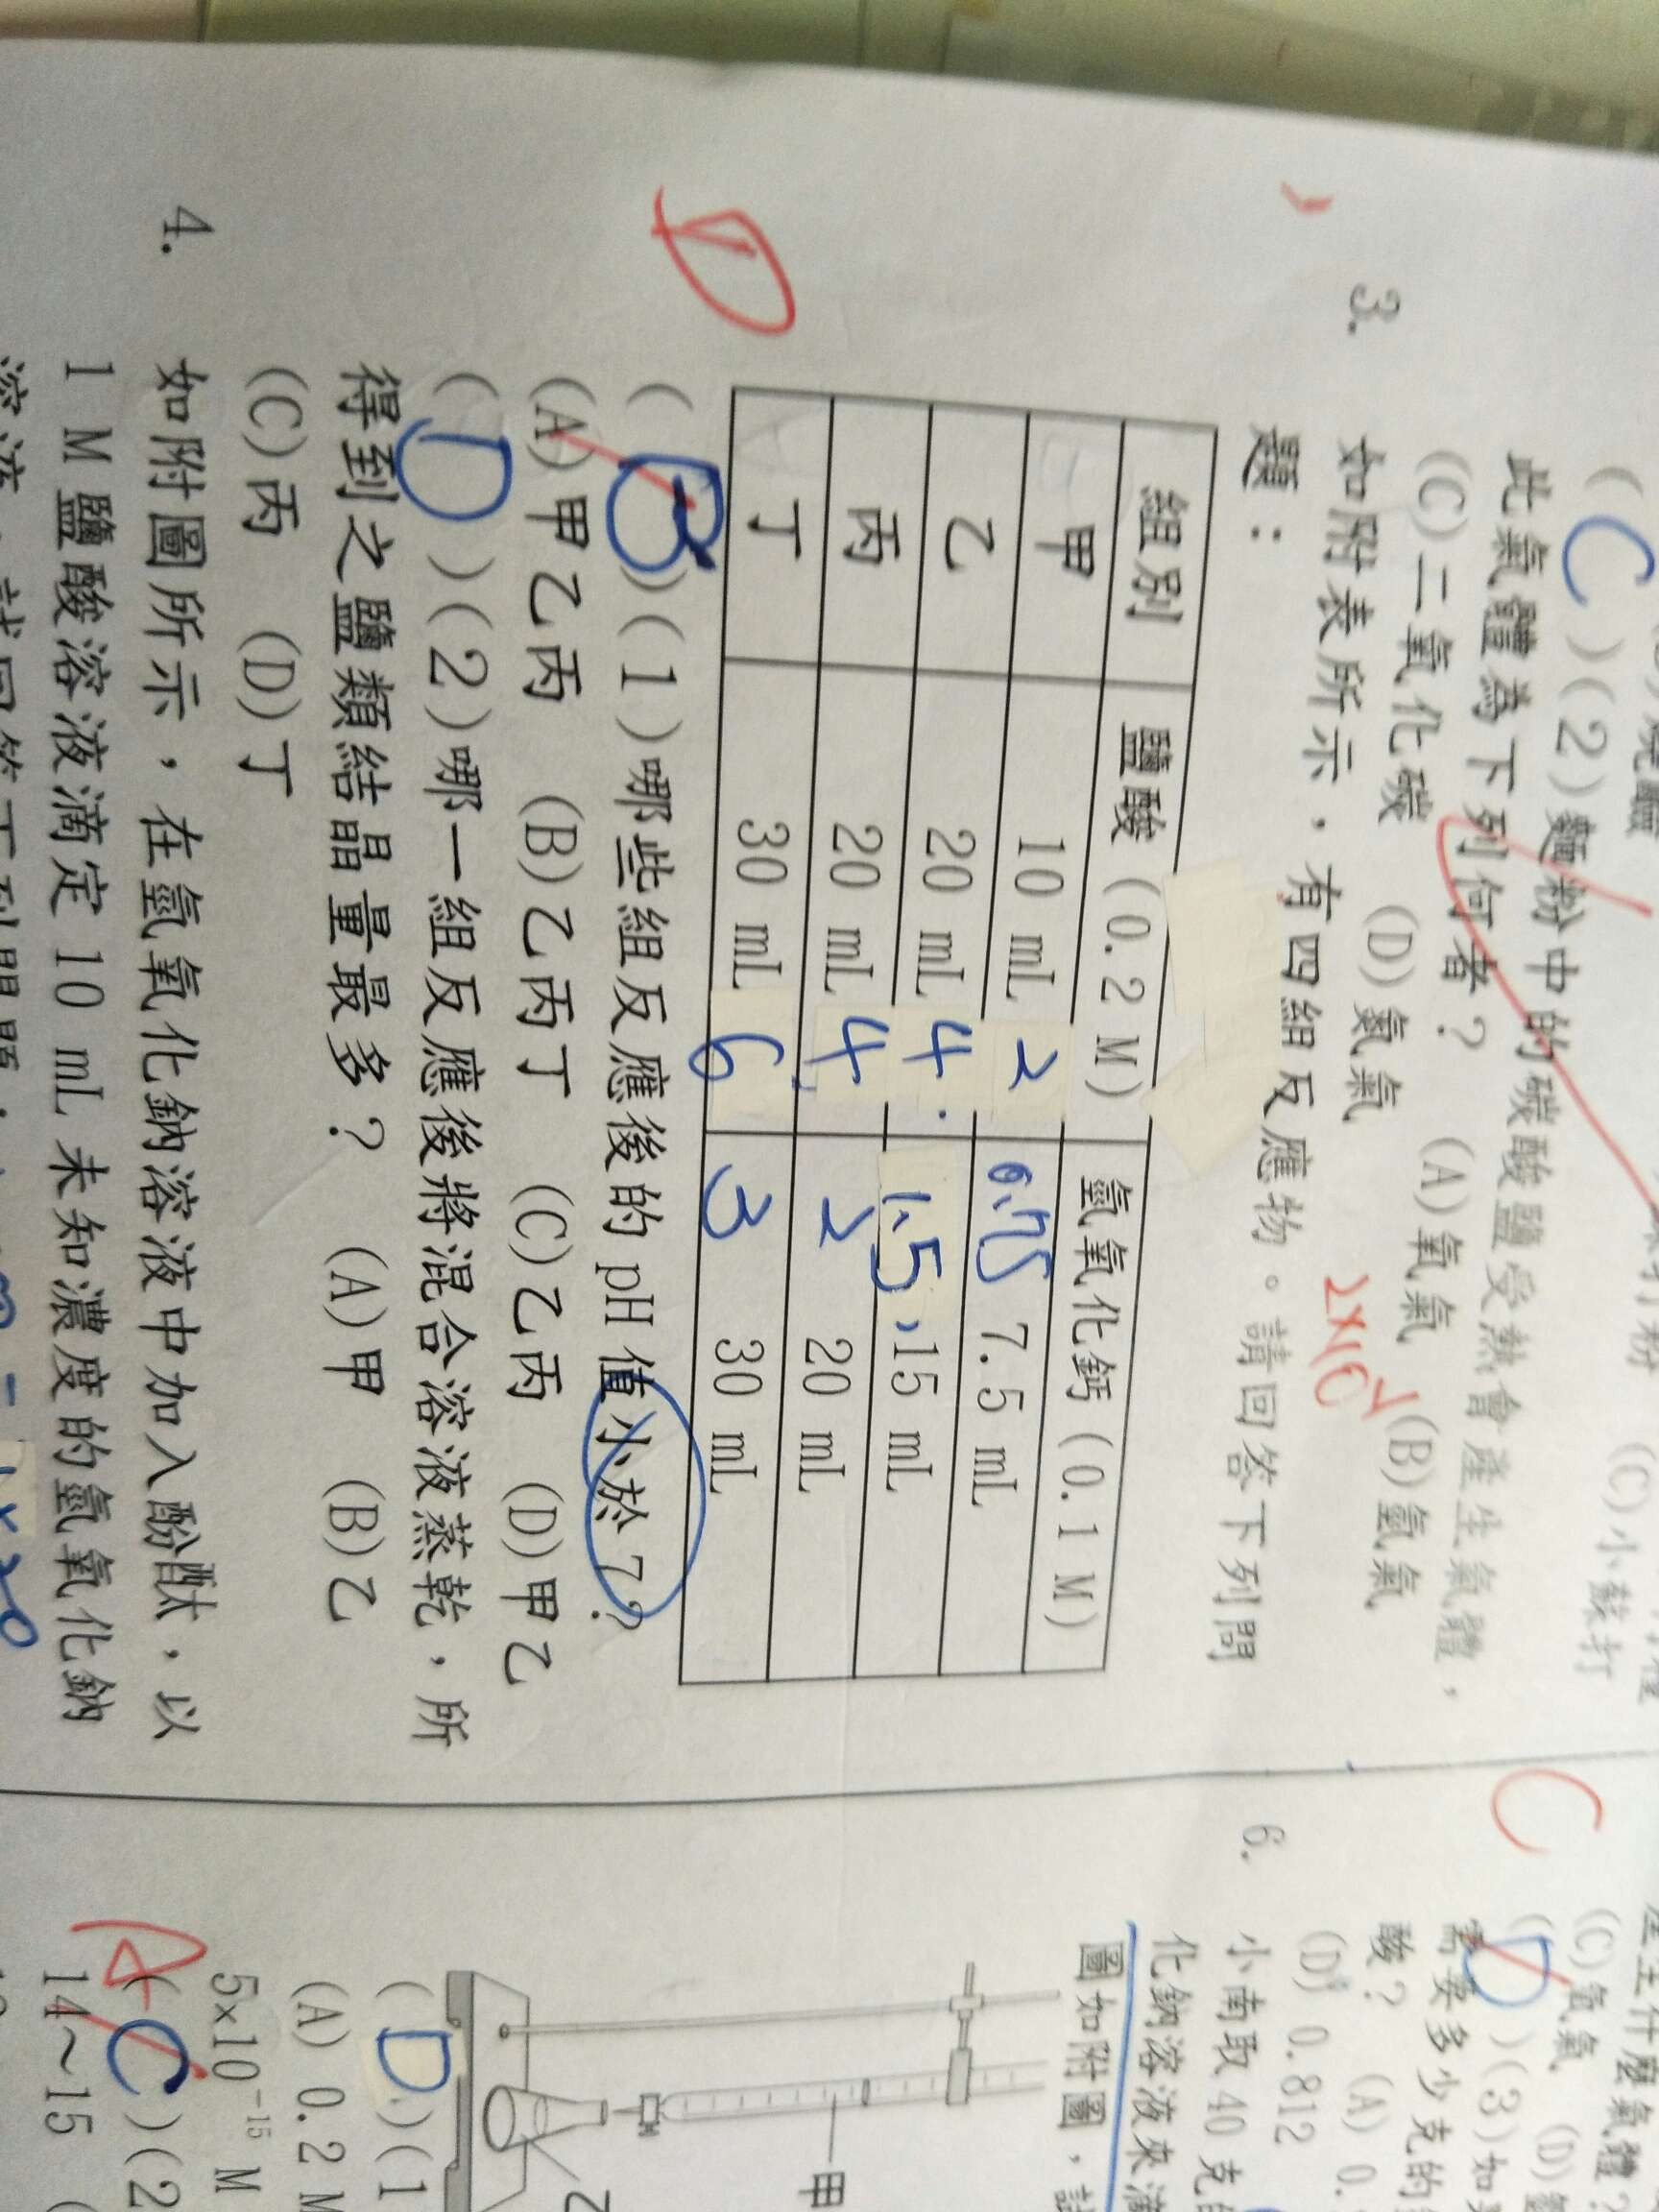 (C)(2)麵粉中的碳酸鹽受熱會產生氣體，
此氣體為下列何者？ (A)氧氣 (B)氫氣
(C)二氧化碳 (D)氮氣
2×10
3. 如附表所示，有四組反應物。請回答下列問
題：
組別 鹽酸(0.2 M) 氫氧化鈣(0.1 M)
甲 10 mL 2 0.75 7.5 mL
乙 20 mL 4 1.5 15 mL
丙 20 mL 4 2 20 mL
丁 30 mL 6 3 30 mL
D
(B)(1)哪些組反應後的 pH 值小於 7？
(A)甲乙丙 (B)乙丙丁 (C)乙丙 (D)甲乙
(D)(2)哪一組反應後將混合溶液蒸乾，所
得到之鹽類結晶量最多？ (A)甲 (B)乙
(C)丙 (D)丁
4. 如附圖所示，在氫氧化鈉溶液中加入酚酞，以
1 M 鹽酸溶液滴定 10 mL 未知濃度的氫氧化鈉
(C)小蘇打
C
(C)氧氣
(D)(3)如
需要多少克的
酸？ (A) 0.
(D) 0.812
6. 小南取 40 克
化鈉溶液來滴
圖如附圖，
甲
乙
(D)(1
(A) 0.2 M
5×10⁻¹⁵ M
A
(C)(2
14～15